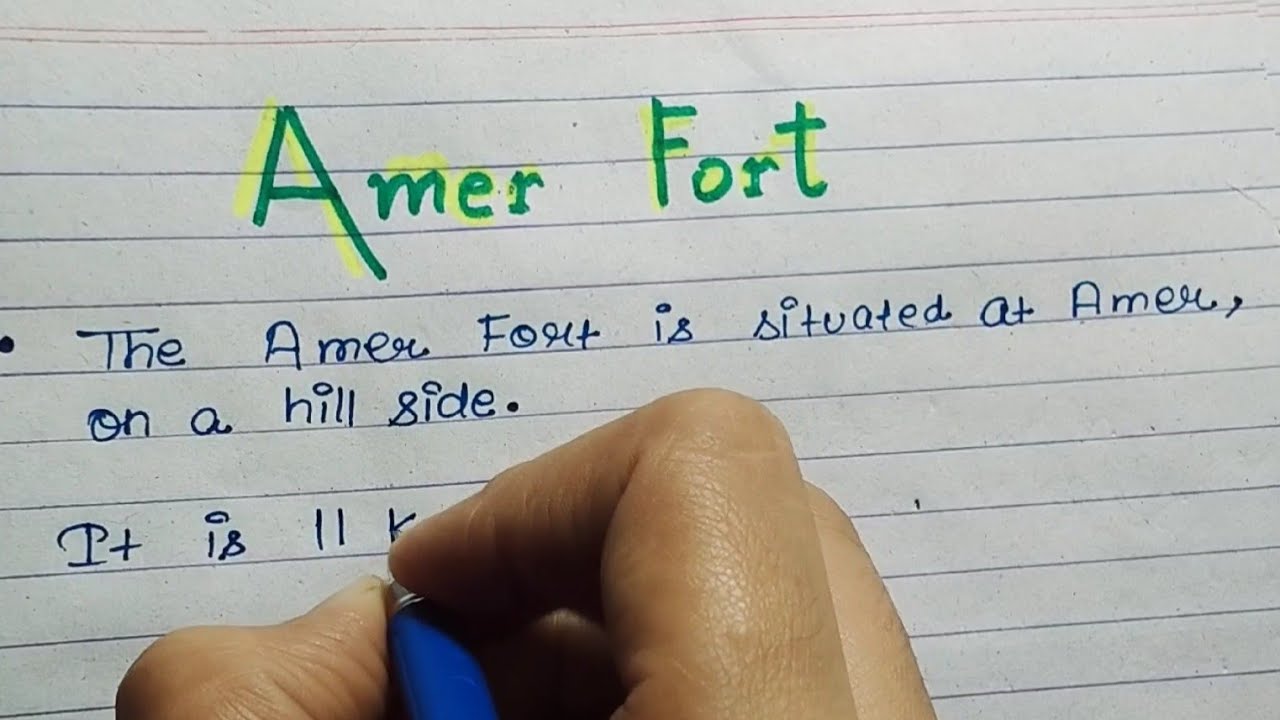 Amer Fort
• The Amer Fort is situated at Amer,
on a hill side.
It is 11 k